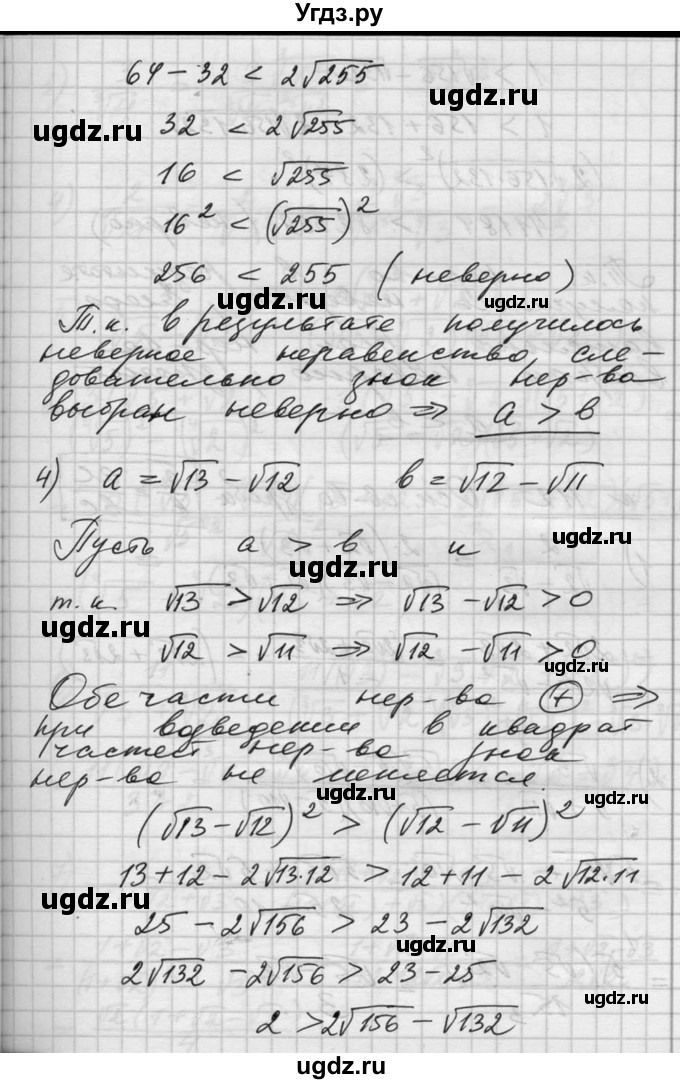 Угдз.ру
64 - 32 < 2√255
ugdz.ru
32 < 2√255
ugdz.ru
16 < √255
16² < (√255)²
256 < 255 (неверно)
ugdz.ru ugdz.ru
Т.к. в результате получилось
неверное неравенство, сле-
довательно знак нер-ва
ugdz.ru
выбран неверно ⇒ a > b
ugdz.ru
4) a = √13 - √12 b = √12 - √11
Пусть a > b и
ugdz.ru
т.к. √13 > √12 ⇒ √13 - √12 > 0
ugdz.ru
√12 > √11 ⇒ √12 - √11 > 0
ugdz.ru
Обе части нер-ва + ⇒
при возведении в квадрат
частей нер-ва знак
нер-ва не меняется.
ugdz.ru ugdz.ru
(√13 - √12)² > (√12 - √11)²
13 + 12 - 2√13·12 > 12 + 11 - 2√12·11
ugdz.ru
25 - 2√156 > 23 - 2√132
ugdz.ru
2√132 - 2√156 > 23 - 25
ugdz.ru
2 > 2√156 - √132
ugdz.ru